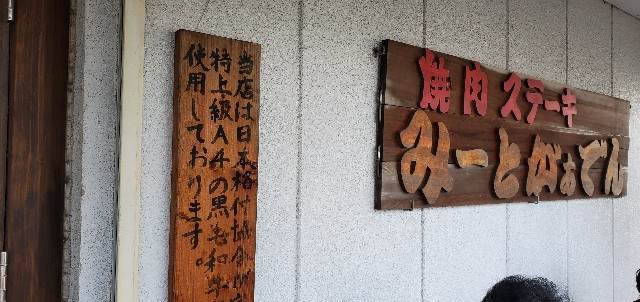 当店は日本格付協会
特上級A4の黒毛和牛
使用しております。
焼肉 ステーキ
みーとがぁでん